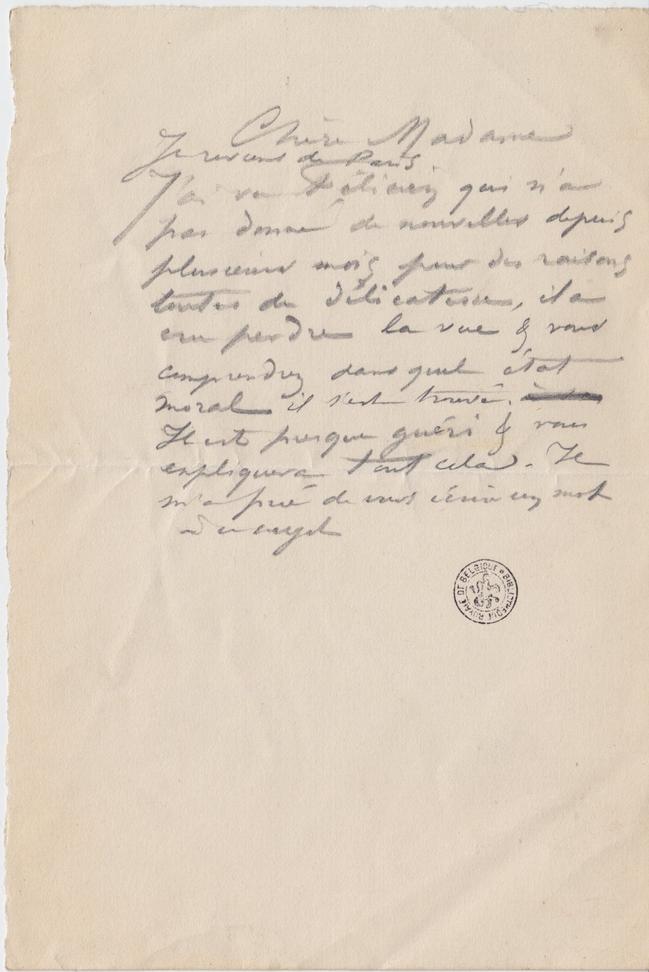 Chère Madame
Je reviens de Paris.
J'ai vu Félicien qui n'a
pas donné de nouvelles depuis
plusieurs mois pour des raisons
toutes de délicatesse, il a
cru perdre la vue & vous
comprendrez dans quel état
moral il s'est trouvé.
Il est presque guéri & vous
expliquera tout cela. Il
m'a prié de vous écrire un mot
à ce sujet
BIBLIOTHEQUE ROYALE DE BELGIQUE